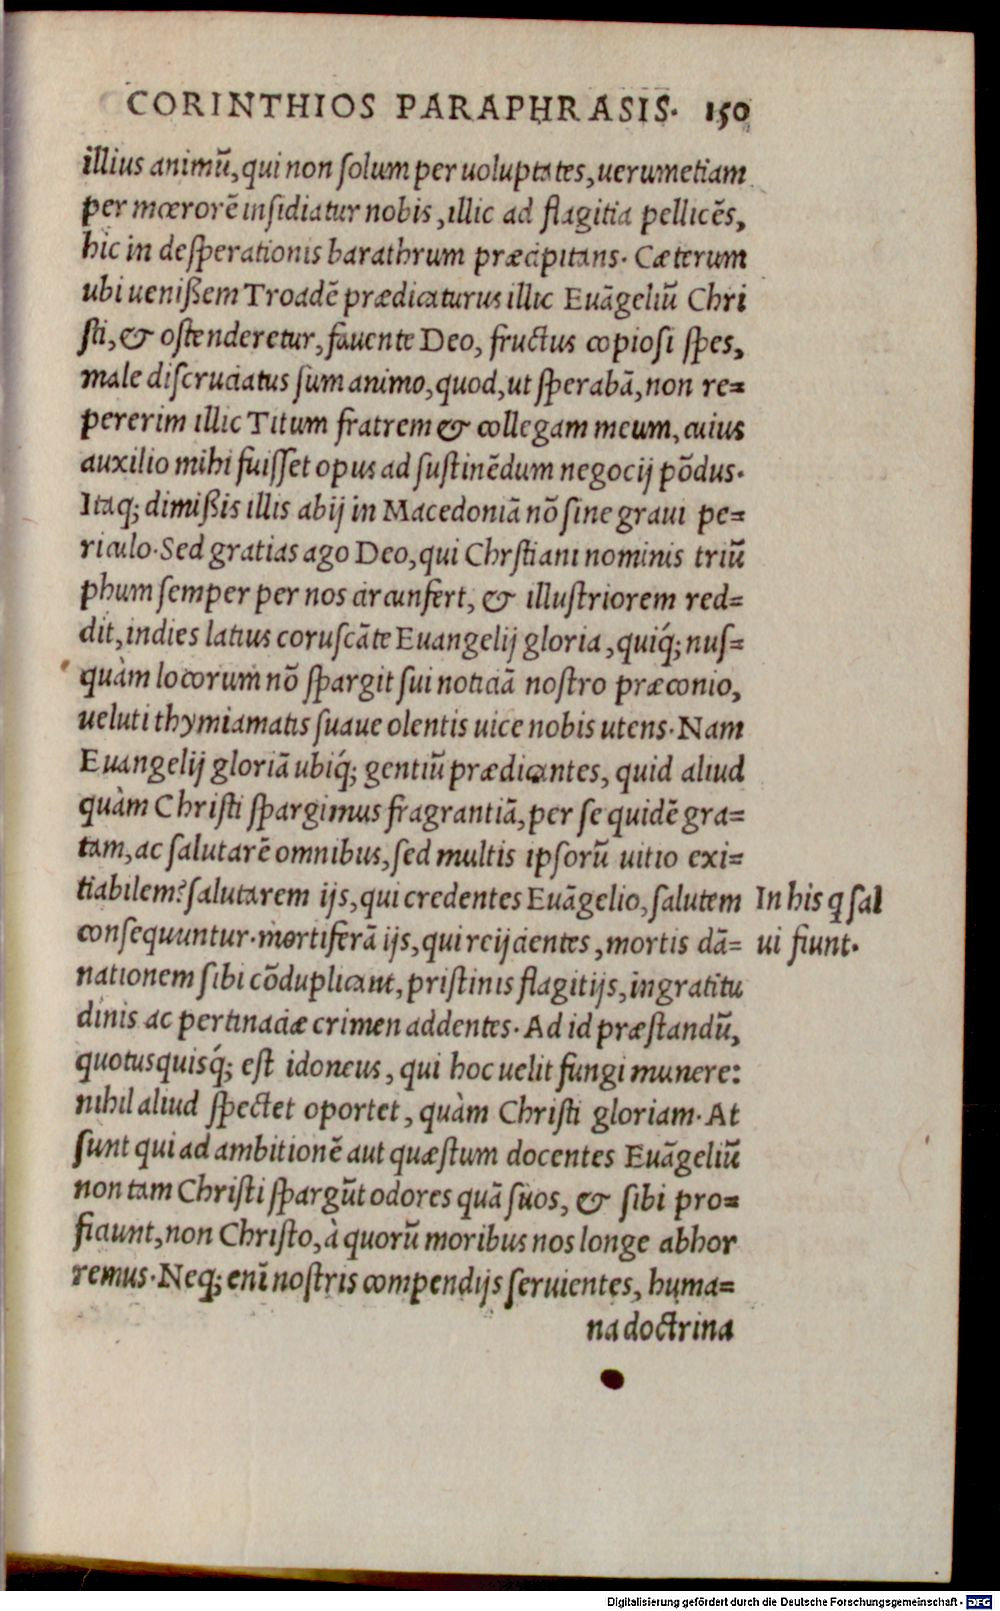 CORINTHIOS PARAPHRASIS. 150
illius animū, qui non ſolum per uoluptates, uerumetiam
per mœrorē inſidiatur nobis, illic ad flagitia pellicēs,
hic in deſperationis barathrum præcipitans. Cæterum
ubi ueniſſem Troadē prædicaturus illic Euāgeliū Chri
ſti, & oſtenderetur, fauente Deo, fructus copioſi ſpes,
male diſcruciatus ſum animo, quod, ut ſperabā, non re=
pererim illic Titum fratrem & collegam meum, cuius
auxilio mihi fuiſſet opus ad ſuſtinēdum negocij pōdus.
Itaq; dimißis illis abij in Macedoniā nō ſine graui pe=
riculo. Sed gratias ago Deo, qui Chrſtiani nominis triū
phum ſemper per nos circunfert, & illuſtriorem red=
dit, indies latius coruſcāte Euangelij gloria, quiq́; nuſ=
quàm locorum nō ſpargit ſui noticiā noſtro præconio,
ueluti thymiamatis ſuaue olentis uice nobis utens. Nam
Euangelij gloriā ubiq́; gentiū prædicantes, quid aliud
quàm Chriſti ſpargimus fragrantiā, per ſe quidē gra=
tam, ac ſalutarē omnibus, ſed multis ipſorū uitio exi=
tiabilem? ſalutarem ijs, qui credentes Euāgelio, ſalutem
conſequuntur. mortiferā ijs, qui reijcientes, mortis dā=
nationem ſibi cōduplicant, priſtinis flagitijs, ingratitu
dinis ac pertinaciæ crimen addentes. Ad id præſtandū,
quotusquisq́; eſt idoneus, qui hoc uelit fungi munere:
nihil aliud ſpectet oportet, quàm Chriſti gloriam. At
ſunt qui ad ambitionē aut quæſtum docentes Euāgeliū
non tam Chriſti ſpargūt odores quā ſuos, & ſibi pro=
ficiunt, non Chriſto, à quorū moribus nos longe abhor
remus. Neq; enī noſtris compendijs ſeruientes, huma=
na doctrina
In his q ſal
ui fiunt.
Digitalisierung gefördert durch die Deutsche Forschungsgemeinschaft - DFG